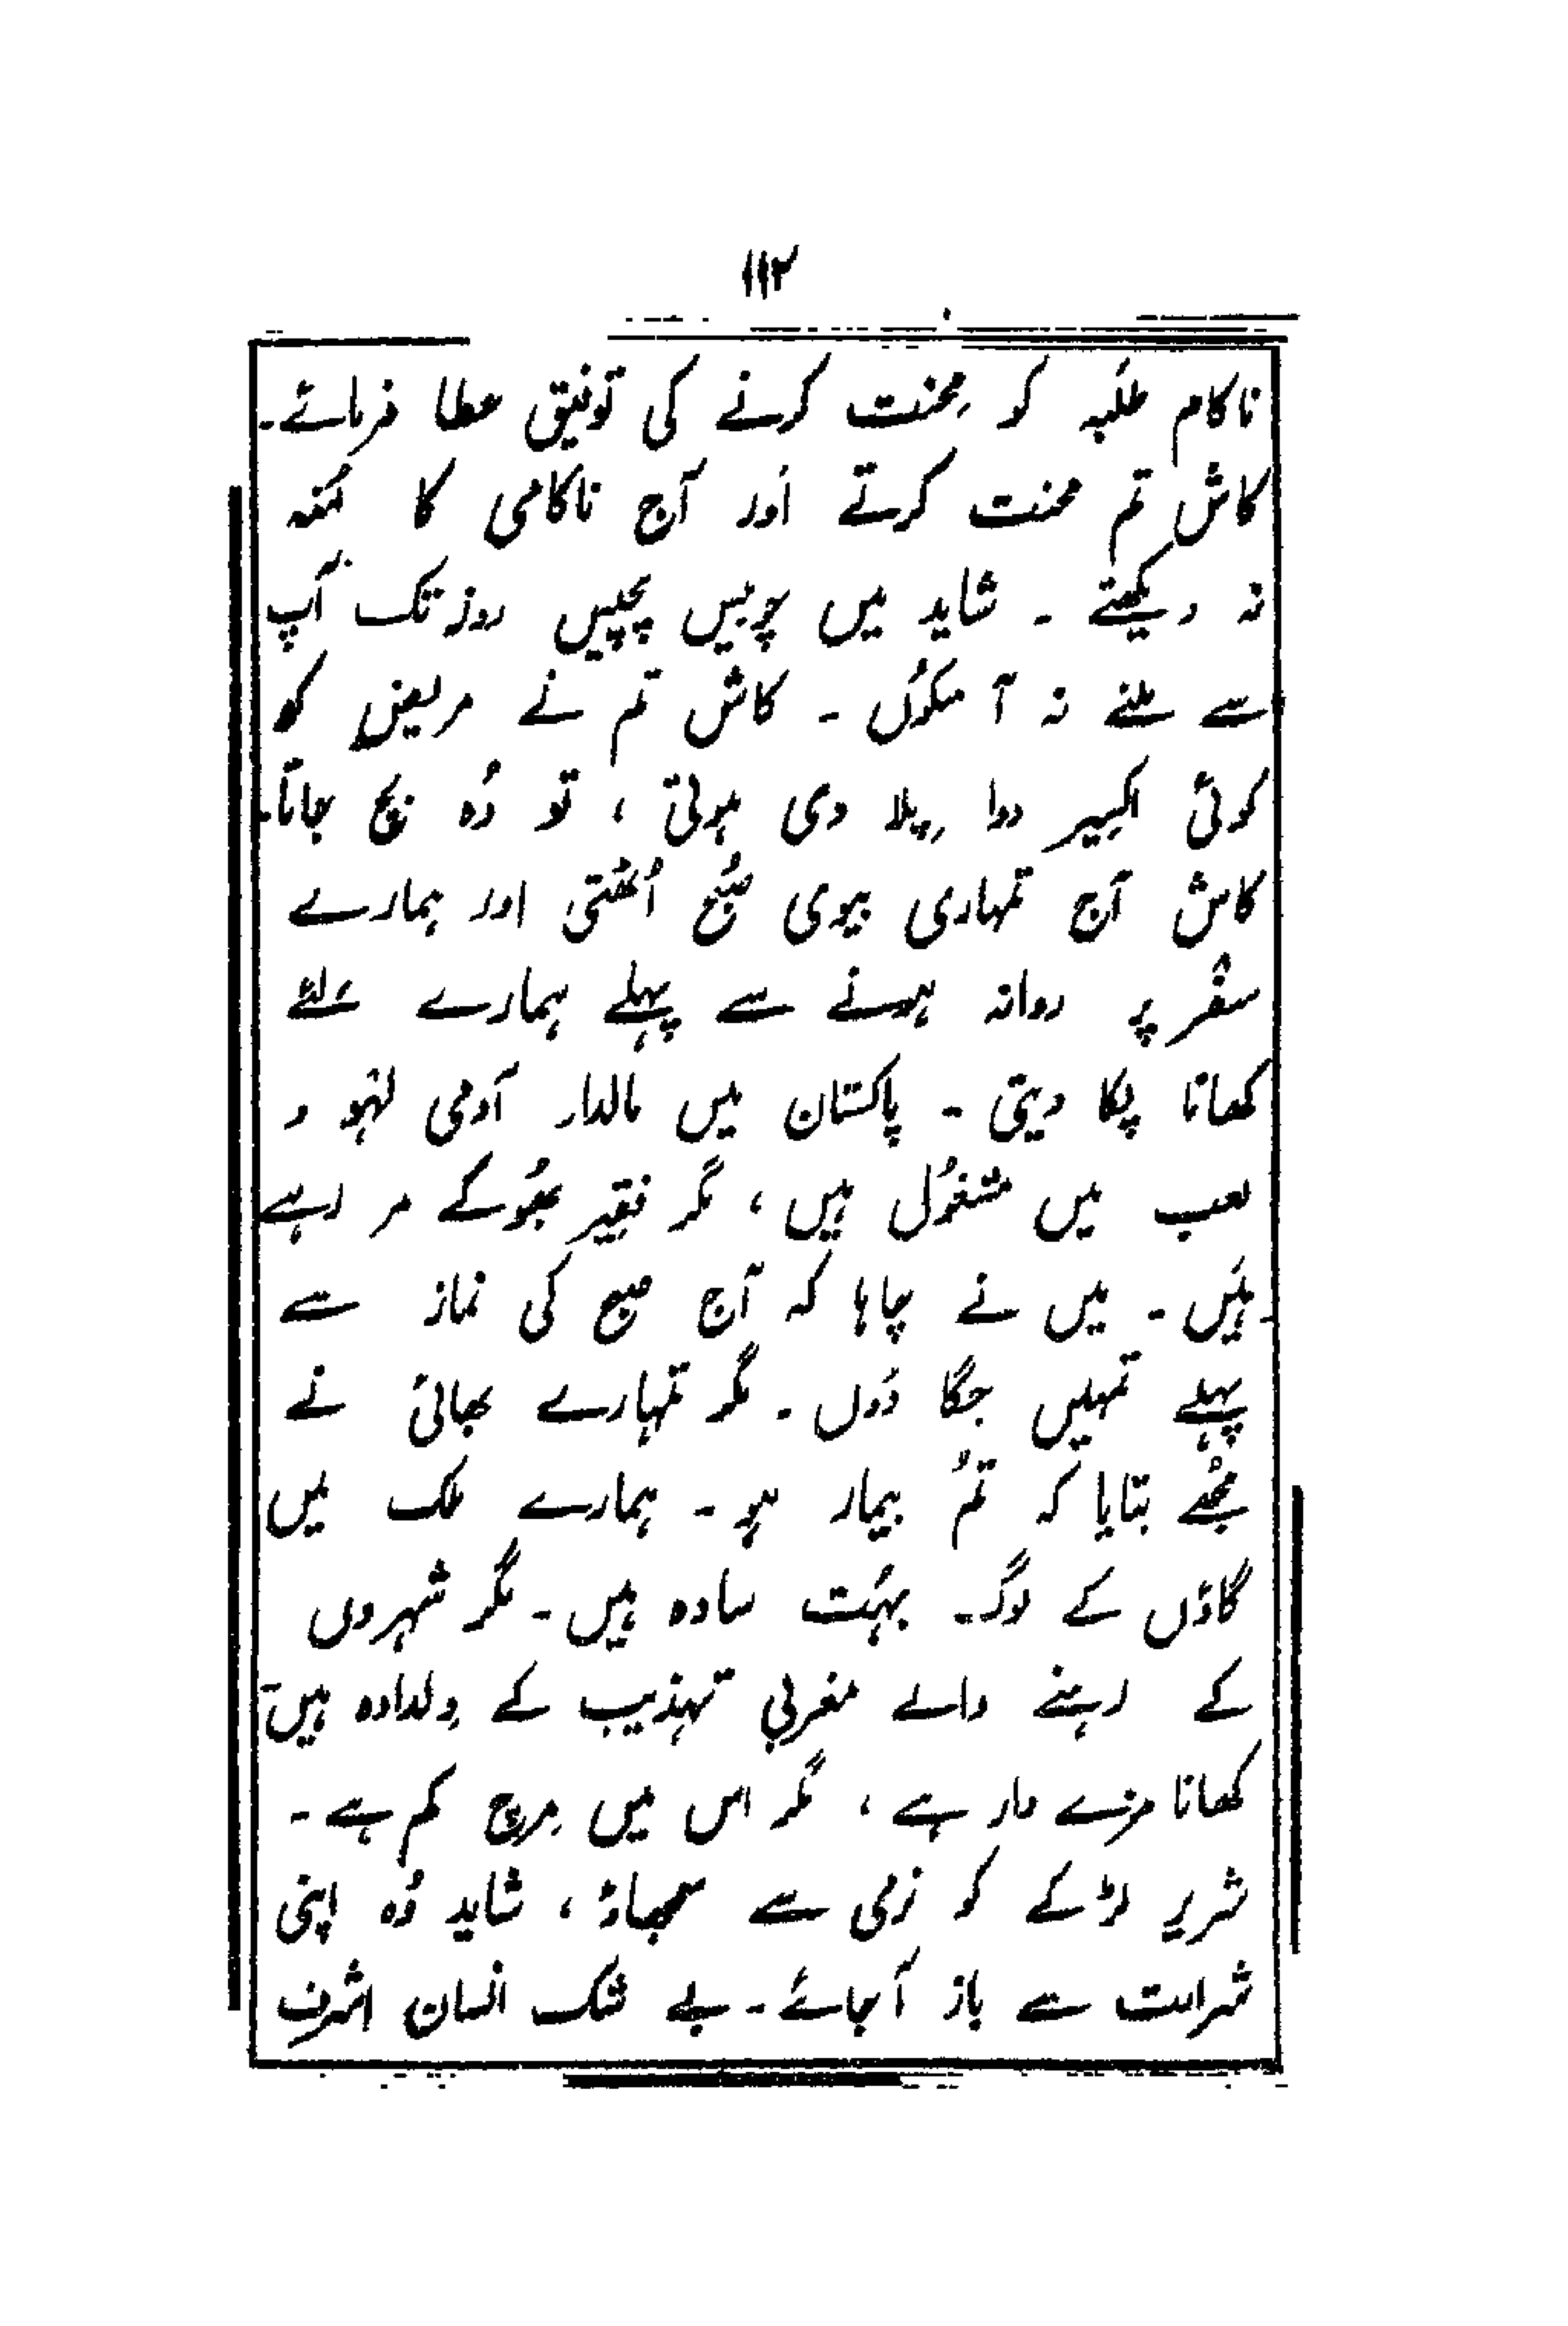 ۱۱۲
ناکام طلَبہ کو مِحنت کرنے کی توفیق عطا فرمائے۔
کاش تم محنت کرتے اَور آج ناکامی کا مُنہ
نہ دیکھتے ۔ شاید میں چوبیس پچیس روز تک آپ
سے ملنے نہ آ سکوُں ۔ کاش تم نے مریض کو
کوئی اکسِیر دوا پِلا دی ہوتی ، تو وُہ بچ جاتا۔
کاش آج تمہاری بیوی صُبح اُٹھتی اور ہمارے
سفر پر روانہ ہونے سے پہلے ہمارے لئے
کھانا پکا دیتی ۔ پاکستان میں مالدار آدمی لہو و
لعب میں مشغوُل ہیں ، مگر فقیر بھوُکے مر رہے
ہَیں ۔ میں نے چاہا کہ آج صبح کی نماز سے
پہلے تمہیں جگا دوں ۔ مگر تمہارے بھائی نے
مجُھے بتایا کہ تمُ بیمار ہو ۔ ہمارے ملک میں
گاؤں کے لوگ بہُت سادہ ہیں ۔ مگر شہروں
کے رہنے والے مغربی تہذیب کے دِلدادہ ہیں۔
کھانا مزے دار ہے ، مگر اس میں مِرچ کم ہے ۔
شریر لڑکے کو نرمی سے سمجھاؤ ، شاید وُہ اپنی
شرارت سے باز آ جائے ۔ بے شک انسان اشرف